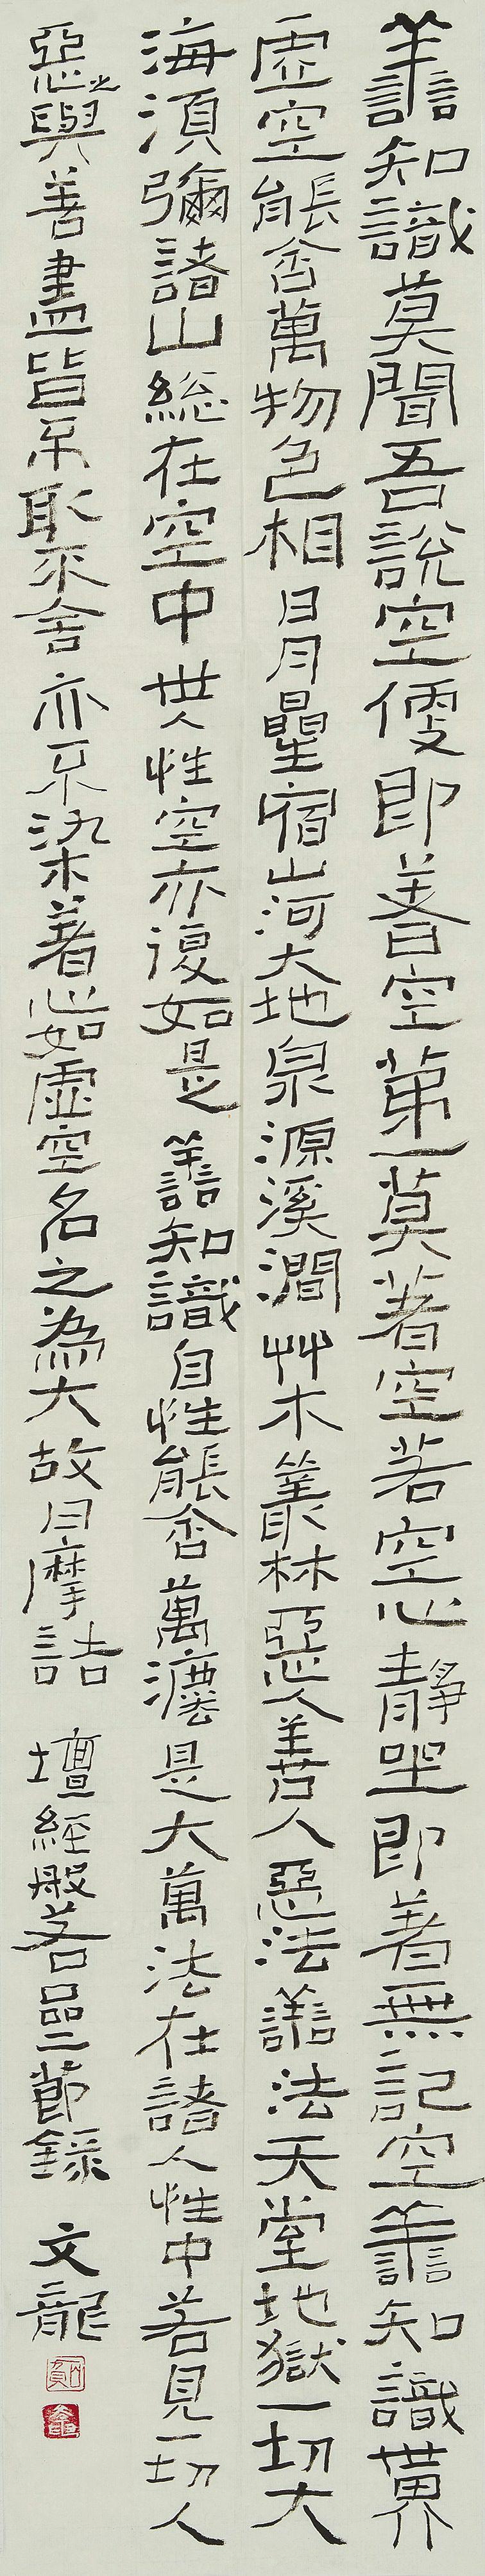 善知識莫聞吾說空便即著空第一莫著空若空心靜坐即著無記空善知識世界
虛空能含萬物色相日月星宿山河大地泉源溪澗艸木叢林惡人善人惡法善法天堂地獄一切大
海須彌諸山總在空中世人性空亦復如是善知識自性能含萬灋是大萬法在諸人性中若見一切人
惡之與善盡皆不取不舍亦不染著心如虛空名之為大故曰摩訶 壇經般若品二節錄 文龍